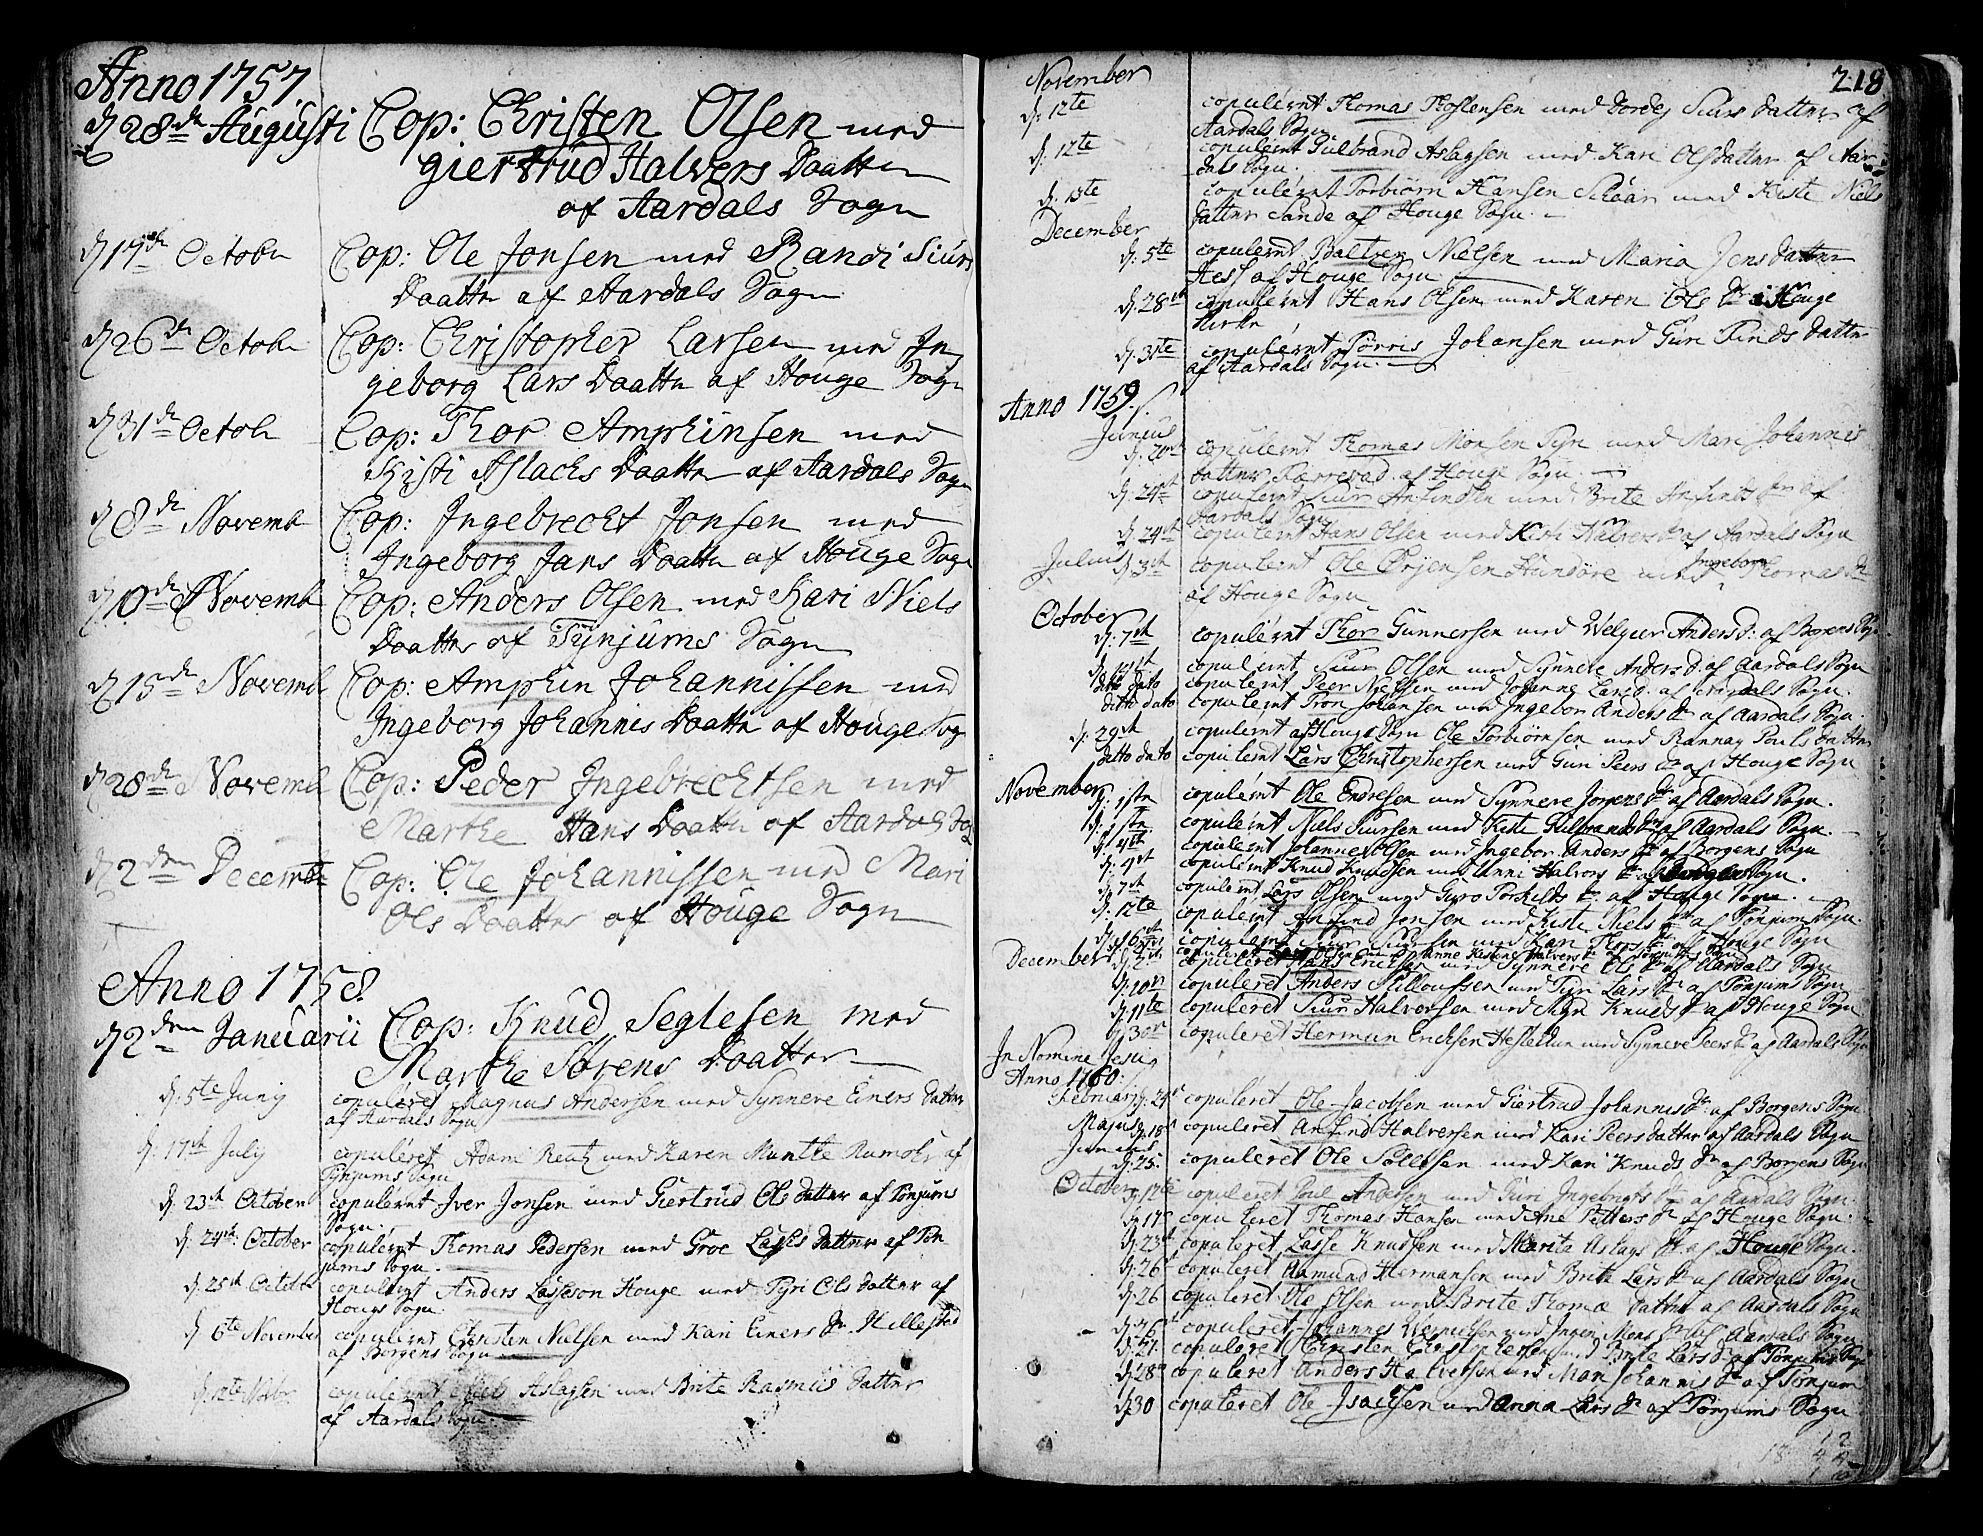 Anno 1757
d 28de Augusti Cop: Christen Olsen med
giertrud Halvers Daatter
af Aardals Sogn
d 17de Octobr Cop: Ole Jonsen med Randi Siurs
Daatter af Aardals Sogn
d 26de Octobr Cop: Christopher Larsen med In
geborg Lars Daatter af Houge Sogn
d 31de Octob Cop: Thor Amphinsen med
Kisti Aslachs Daatter af Aardals Sogn
d 8de Novemb Cop: Ingebrecht Jonsen med
Ingeborg Jans Daatter af Houge Sogn
d 10de Novemb Cop: Anders Olsen med Kari Niels
Daatter af Tynjums Sogn
d 15de Novemb Cop: Amphin Johannissen med
Ingeborg Johannis Daatter af Houge Sogn
d 28de Novemb Cop: Peder Ingebrechtsen med
Marthe Hans Daatter af Aardals Sog
d 2den Decemb Cop: Ole Johannissen med Mari
Ols Daatter af Houge Sogn
Anno 1758.
d 2den Januarii Cop: Knud Seglesen med
Marthe Sørens Daatter
d. 5te Junij copuleret Magnus Andersen med Synneve Einers Datter
af Aardals Sogn
d. 17de July copuleret Adam Reutz med Karen Munthe Rumohr af
Tynjums Sogn
d. 23de October copuleret Iver Jonsen med Giertrud Olsdatter af Tønjums
Sogn.
d. 24de October copuleret Thomas Pedersen med Groe Lasses datter af Tøn
jums Sogn.
d. 25de Octobr copuleret Anders Lasseson Houge med Pyri Ols datter af
Hougs Sogn
d 6te November copuleret Christen Nielsen med Kari Einers dr. Hillestad
af Borgens Sogn
d. 12te Novbr copuleret Aslagsen med Brite Rasmus datter
af Aardals Sogn.
218
November
d. 12te copuleret Thomas Thostensen med Dordej Siurs datter af
Aardals Sogn
d. 12te copuleret Gulbrand Aslagsen med Kari Olsdatter af Aar
dals Sogn.
d. 13te copuleret Torbiørn Hansen med Kiste Niels
datter Sande af Houge Sogn.
December
d. 5te copuleret Baltzer Nielsen med Maria Jens datter
af Houge Sogn
d. 28de copuleret Hans Olsen med Karen Ols dr i Houge
Kirke
d. 31te copuleret Pørris Johansen med Guri Finds datter
af Aardals Sogn.
Anno 1759.
Junius
copuleret Thomas Monsen Tyri med Mari Johannis
datter af Houge Sogn.
d. 24de copuleret Siur Anfindsen med Brite Anfinds dr af
Aardals Sogn
d. 24de copuleret Hans Olsen med Kiste Halvers dr af Aardals Sogn
Julius d. 3de copuleret Ole Ørjensen Hundøre med Ingeborg Thomas dr
af Houge Sogn
October
d. 7de copuleret Thor Gunnersen med Welgier Anders dr af Borgens Sogn
copuleret Siur Olsen med Synneve Anders dr af Aardals Sogn
ditto dato copuleret Peer Nielsen med Johanne Lars d. af Aardals Sogn.
ditto dato copuleret Tron Johansen med Ingebor Anders dr af Aardals Sogn.
d. 29de copuleret af Houge Sogn Ole Torbiørnsen med Rannay Pouls datter
ditto dato copuleret Lars Christophersen med Guri Peers dr af Houge Sogn
November
d. 1ste copuleret Ole Endresen med Synneve Jørgens dr af Aardals Sogn.
d. 1ste copuleret Niels Siursen med Kiste Gulbrands dr af Aardals Sogn.
d. 4de copuleret Johannes Olsen med Ingebor Anders dr af Borgens Sogn
d. 4de copuleret Knud Knudsen med Anne Halvors dr af Sogn.
d. 7de copuleret Lars Olsen med Guro Torkilds dr af Houge Sogn.
d. 12te copuleret Anfind Jonsen med Kiste Niels dr af Tønjums Sogn.
copuleret Siur Siursen med Kari Thors dr af Houge Sogn
December
d. 2den copuleret Hans Ericksen med Synneve Ols dr af Aardals Sogn
d. 10de copuleret Anders med Tyri Lars dr af Tønjums Sogn
d. 11te copuleret Siur Halvorsen med Knuds dr af Houge Sogn
d. 30de copuleret Herman Ericksen med Synneve Peers dr af Aardals Sogn
In Nomine Jesu
Anno 1760.
Februarij d. 24de copuleret Ole Jacobsen med Giertrud Johannis dr af Borgens Sogn
Majus d. 18de copuleret Anfind Halversen med Kari Peers datter af Aardals Sogn
Junius
d. 25. copuleret Ole med Kari Knuds dr af Borgens Sogn
October
d. 12te copuleret Poul Andersen med Guri Ingebrigts dr af Aardals Sogn.
d. 17de copuleret Thomas Hansen med Ane Petters dr af Houge Sogn.
d. 23de copuleret Lasse Knudsen med Marita Aslags dr af Houge Sogn.
d. 26de copuleret Aamund Hermansen med Brite Lars dr af Aardals Sogn
d. 26 copuleret Ole Olsen med Brite Thomæ datter af Aardals Sogn
copuleret Johannes med Inger Mons dr af Aardals Sogn.
d. 27. copuleret Christen Christophersen med Brite Lars dr af Tønjums Sogn
d. 28de copuleret Anders Halversen med Mari Johannis dr af Tønjum
d. 30 copuleret Ole Isachsen med Anna Lars dr af Tønjums Sogn